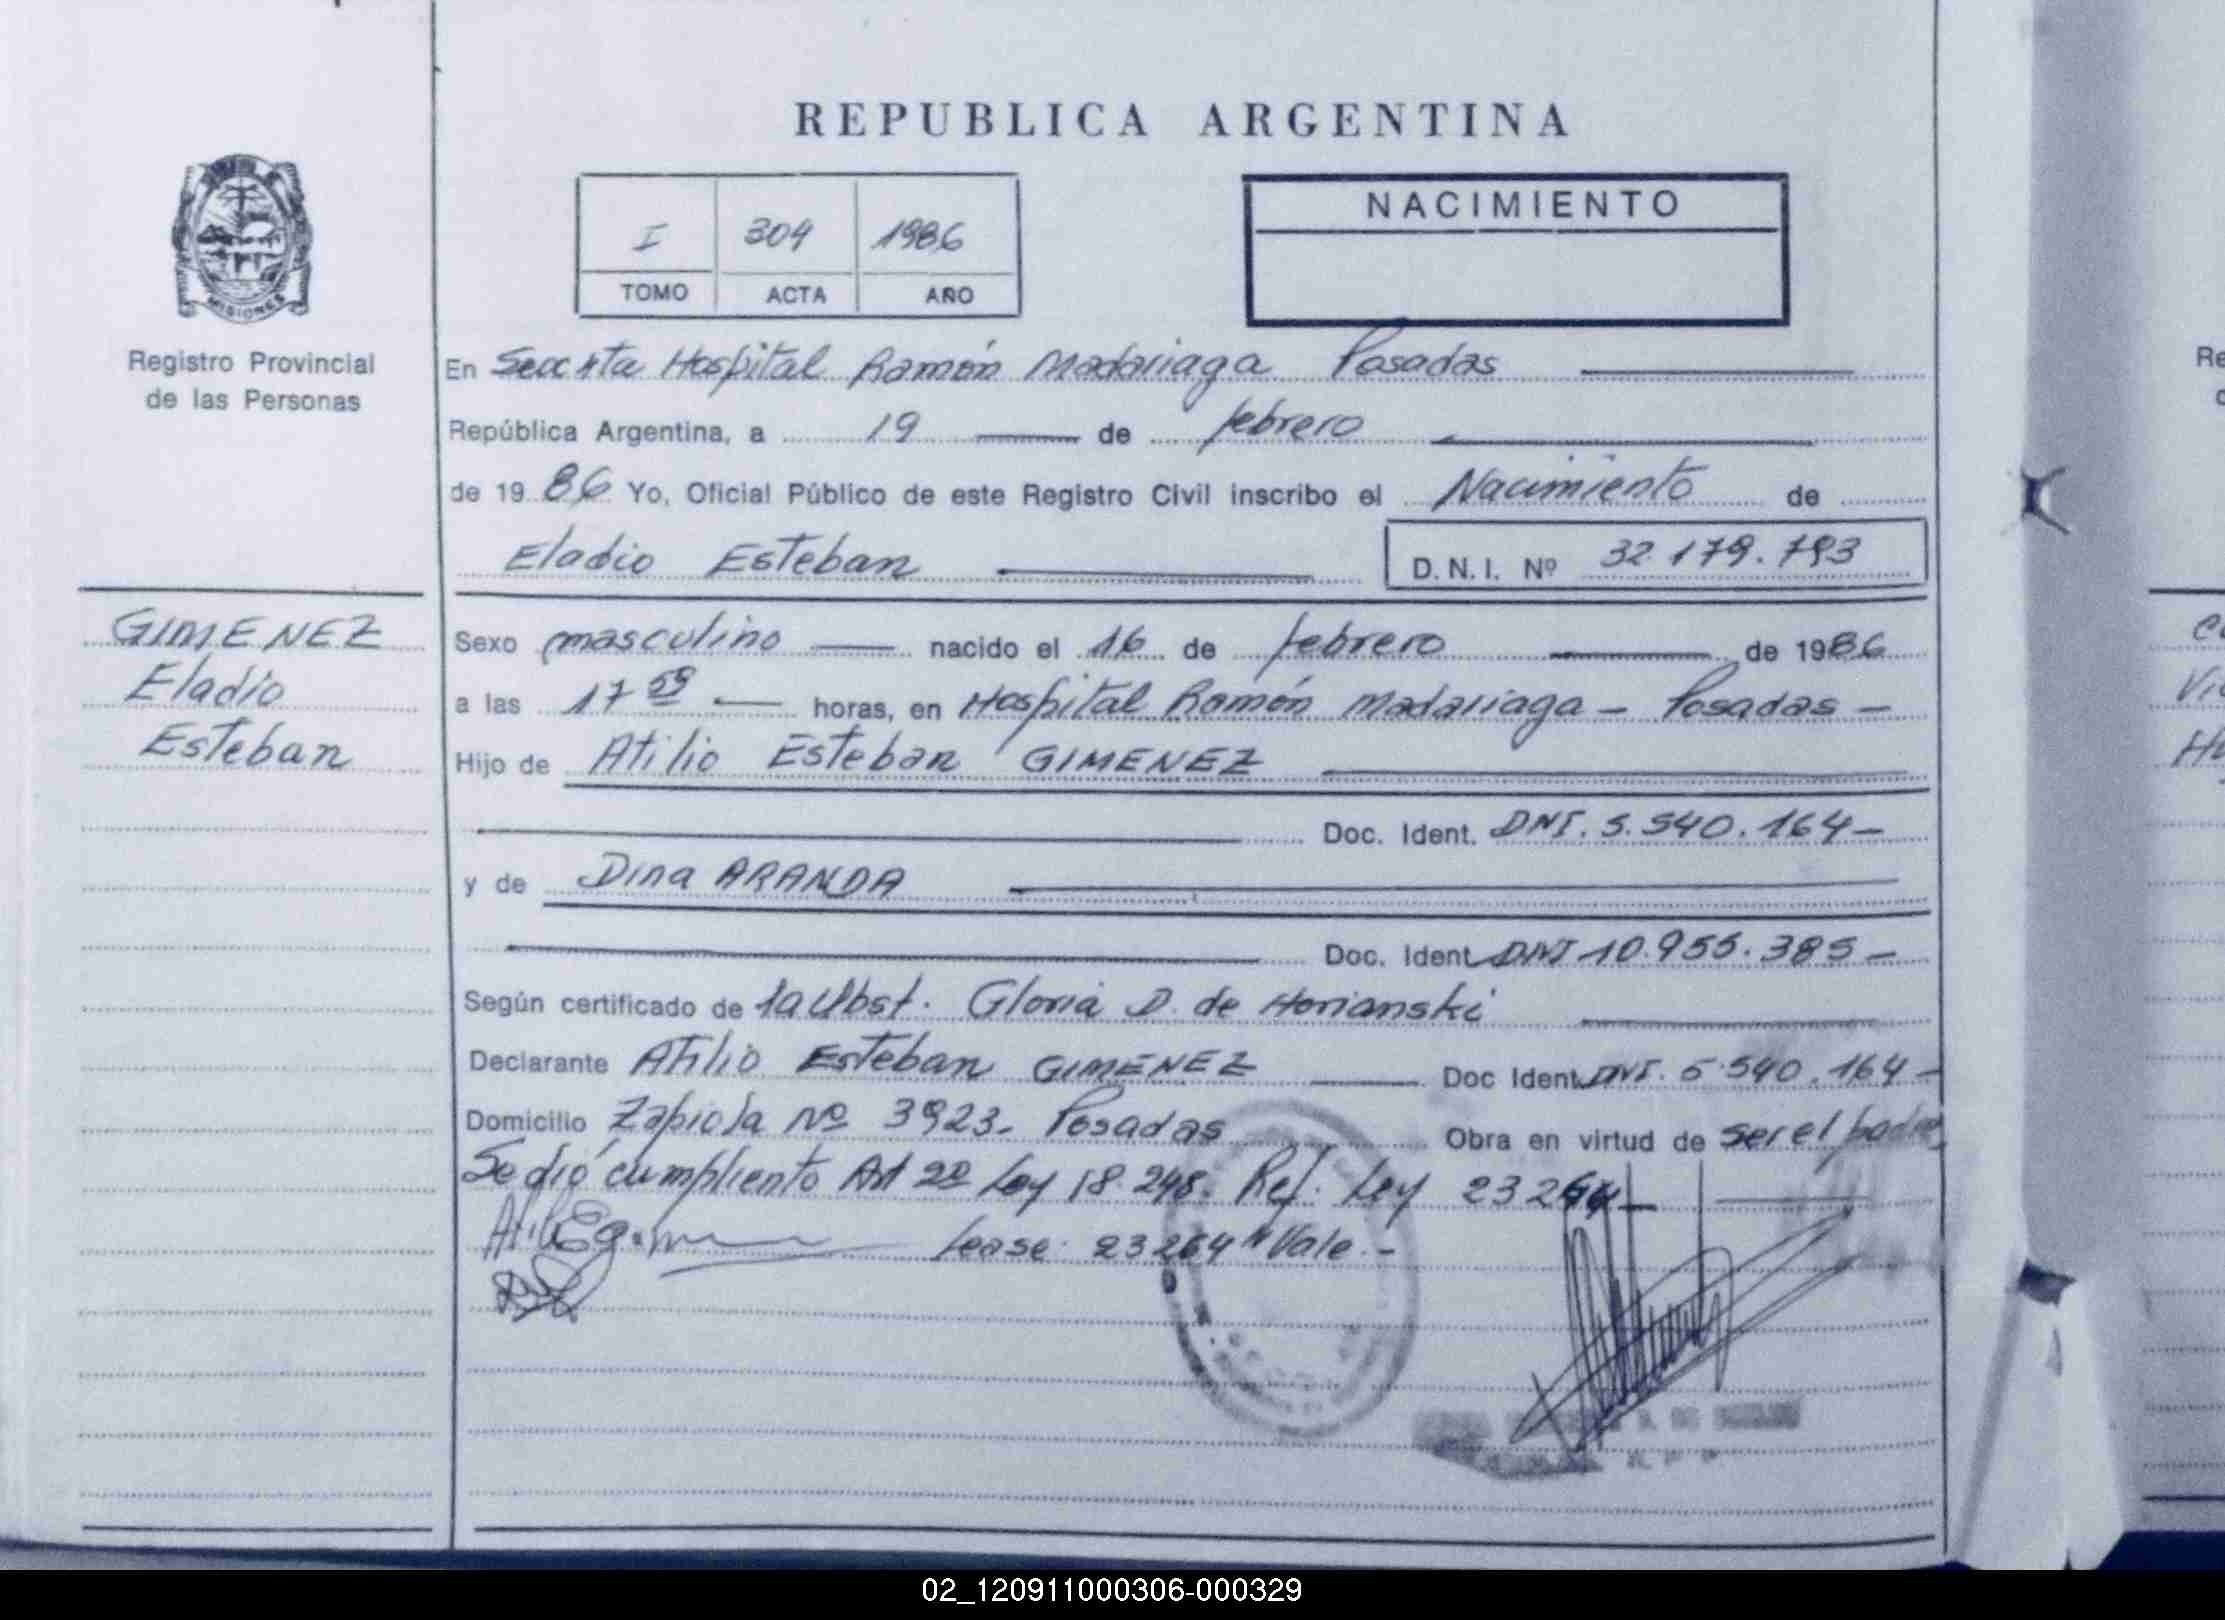 REPUBLICA ARGENTINA
I 304 1986
TOMO ACTA AÑO
NACIMIENTO
MISIONES
Registro Provincial
de las Personas
En Hospital Ramón Madariaga Posadas
República Argentina, a 19 de febrero
de 1986 Yo, Oficial Público de este Registro Civil inscribo el Nacimiento de
Eladio Esteban
D.N.I. Nº 32.179.793
GIMENEZ
Eladio
Esteban
Sexo masculino nacido el 16 de febrero de 1986
a las 17 59 horas, en Hospital Ramón Madariaga - Posadas -
Hijo de Atilio Esteban GIMENEZ
Doc. Ident. DNI. 5.540.164-
y de Dina ARANDA
Doc. Ident. DNI 10.955.385-
Según certificado de la Obst. Gloria D. de Horianski
Declarante Atilio Esteban GIMENEZ Doc Ident. DNI. 5.540.164-
Domicilio Zapiola Nº 3923. Posadas Obra en virtud de ser el padre
Se dió cumpliento Art 2º Ley 18.248. Ref. Ley
Lease: 23264 "Vale.-
02_120911000306-000329